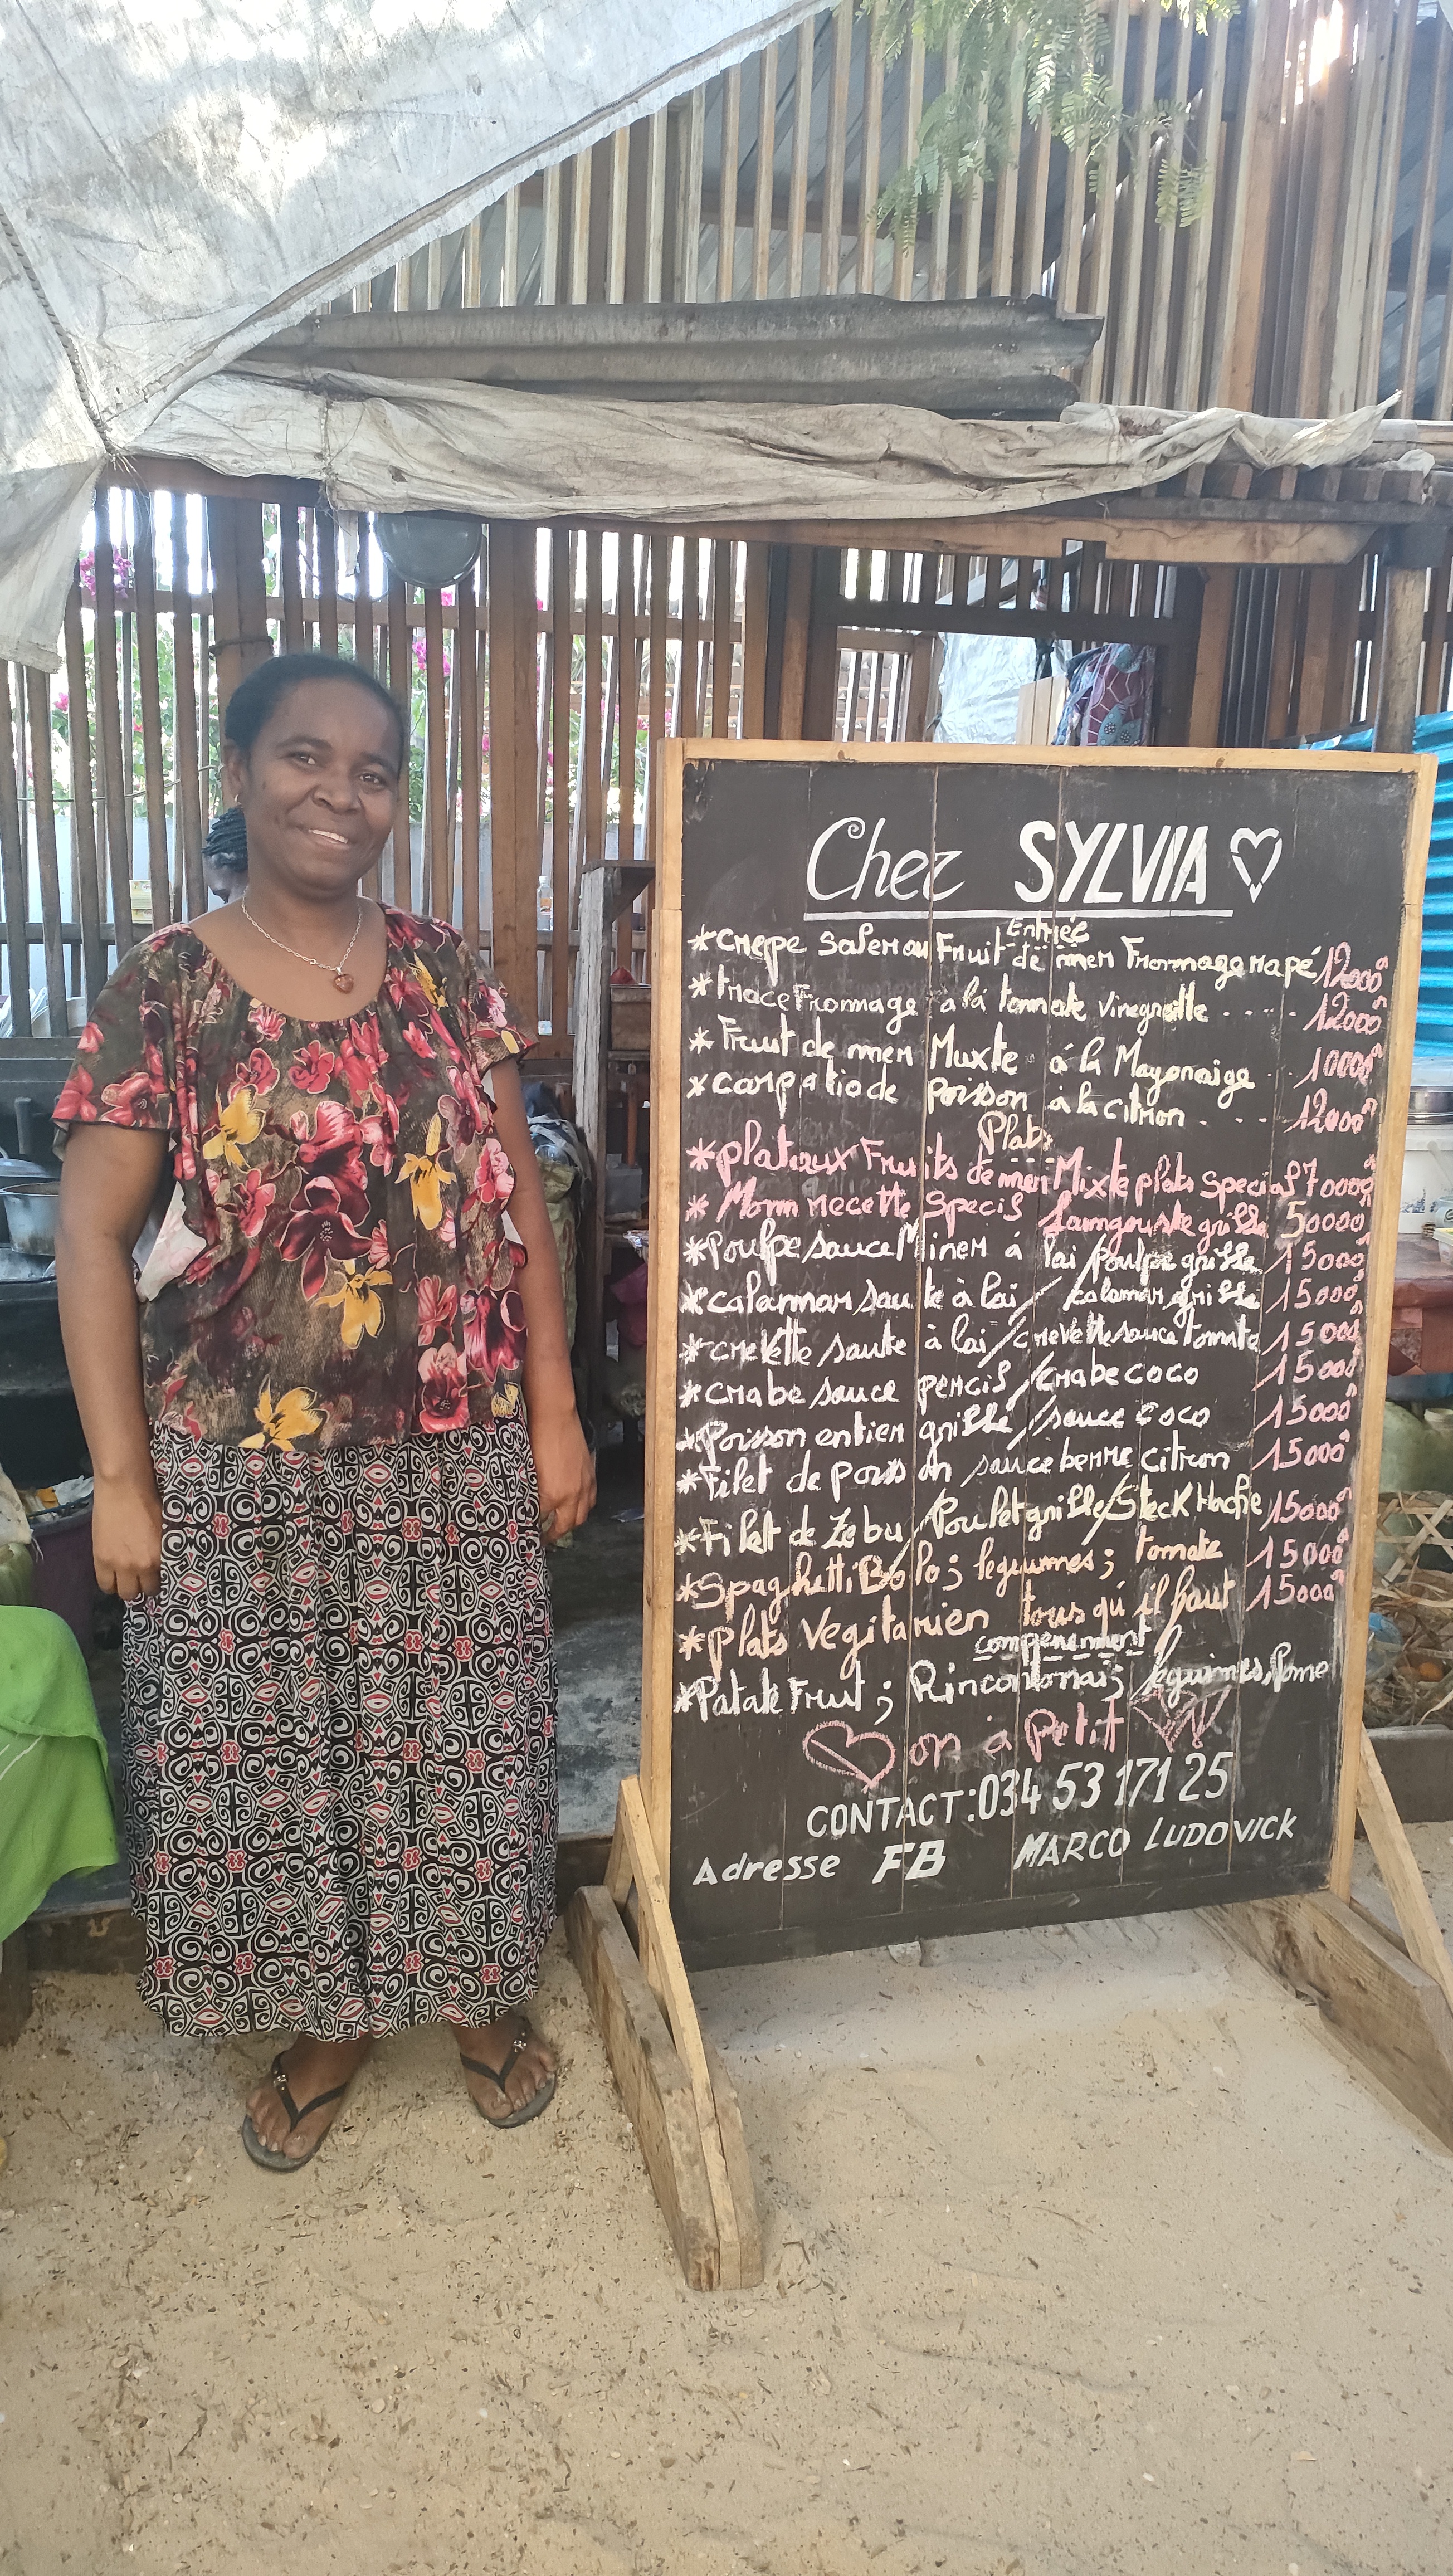 Chez SYLVIA
Entrieé
*crepe Saler au Fruit de mer Frommage rapé 12000ᴬ
*trace Frommage à lá tomate vinegrette .... 12000ᴬ
*Fruit de mer Muxte á la Mayonaige .. 10000ᴬ
*carpatio de poisson à la citron . . . 12000ᴬ
Plats
*plateaux Fruits de mer Mixte plats Special 70000ᴬ
*Monn recette Specis Laungouste grille 50000
*Poulpe sauce Miner á lai/poulpe grille 15000ᴬ
*calammar saute à lai/calamar grille 15000ᴬ
*crevette saute à lai/crevette sauce tomate 15000ᴬ
*crabe sauce percis/crabe coco 15000ᴬ
*Poisson entier grille/sauce coco 15000ᴬ
*Filet de poisson sauce berre citron 15000ᴬ
*Filett de Zebu/Poulet grille/Steck Hache 15000ᴬ
*Spaghetti Bolo; legumes; tomate 15000ᴬ
*plats Vegitarien tous qu'il faut 15000ᴬ
compenement
*Patate Fruit; Rincontonais; leguimes, Pome
on à Petit
CONTACT:034 53 171 25
Adresse FB MARCO LUDOVICK